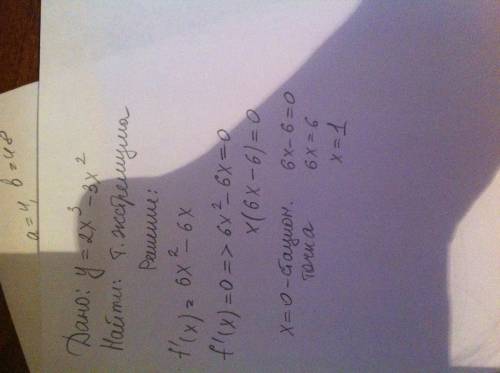 a=4, b=48
Дано: y=2x³-3x²
Найти: т. экстремума
Решение:
f'(x)=6x²-6x
f'(x)=0=>6x²-6x=0
x(6x-6)=0
x=0-стацион. точка
6x-6=0
6x=6
x=1